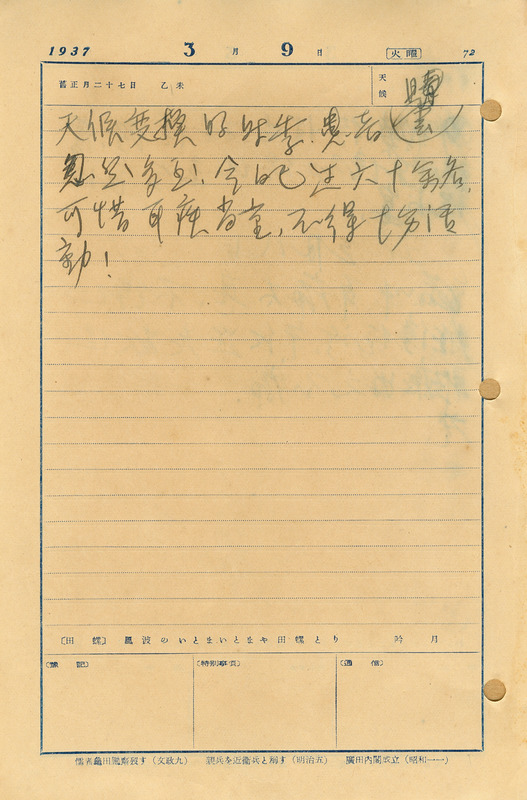 1937 3月9日 火曜 72
舊正月二十七日 乙未 天候
天候変換的时季,患者
忽然多至,今日已达六十余名,
可惜耳疾当中,不得十分活
動!
〔田螺〕 風波のいとまいとまや田螺とり 吟月
〔豫記〕 〔特別事項〕 〔通信〕
儒者龜田鵬齋歿す(文政九) 親兵を近衞兵と稱す(明治五) 廣田內閣成立(昭和一一)